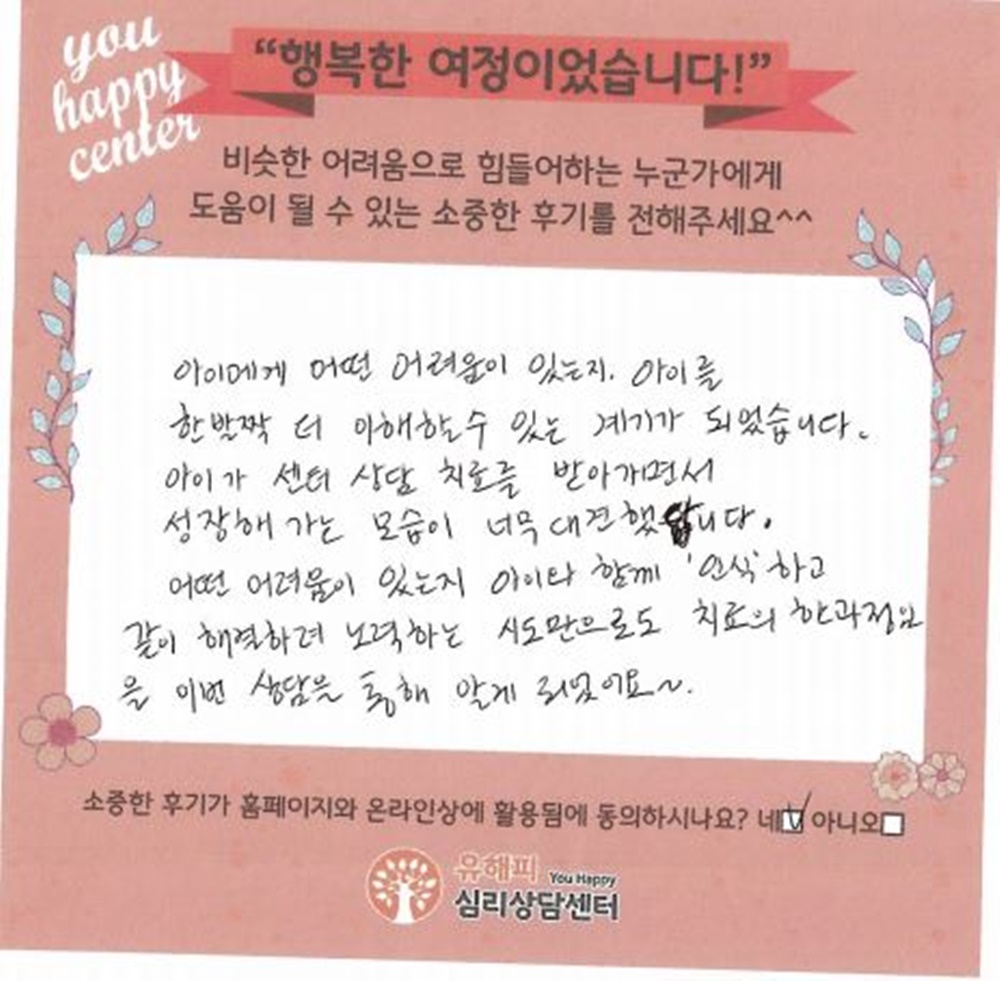 you
happy
center
“행복한 여정이었습니다!”
비슷한 어려움으로 힘들어하는 누군가에게
도움이 될 수 있는 소중한 후기를 전해주세요^^
아이에게 어떤 어려움이 있는지. 아이를
한발짝 더 이해할수 있는 계기가 되었습니다.
아이가 센터 상담 치료를 받아가면서
성장해 가는 모습이 너무 대견했습니다.
어떤 어려움이 있는지 아이와 함께 '인식'하고
같이 해결하려 노력하는 시도만으로도 치료의 한과정임
을 이번 상담을 통해 알게 되었어요~.
소중한 후기가 홈페이지와 온라인상에 활용됨에 동의하시나요? 네☑ 아니오☐
유해피 You Happy
심리상담센터